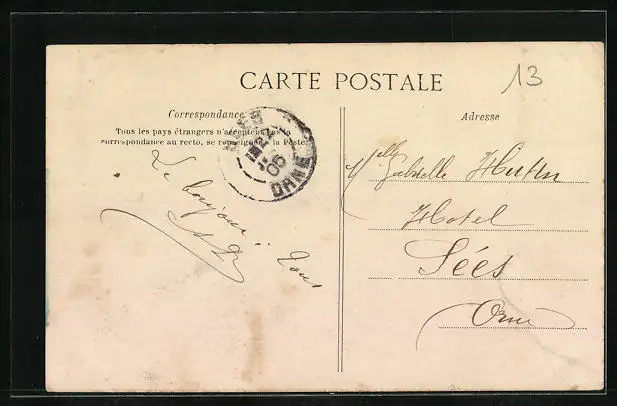 13
CARTE POSTALE
Correspondance
Tous les pays étrangers n'acceptent pas la
correspondance au recto, se renseigner à la Poste.
Adresse
06
ORNE
Le bonjour à tous
Melle Gabrielle
Hotel
Sées
Orne